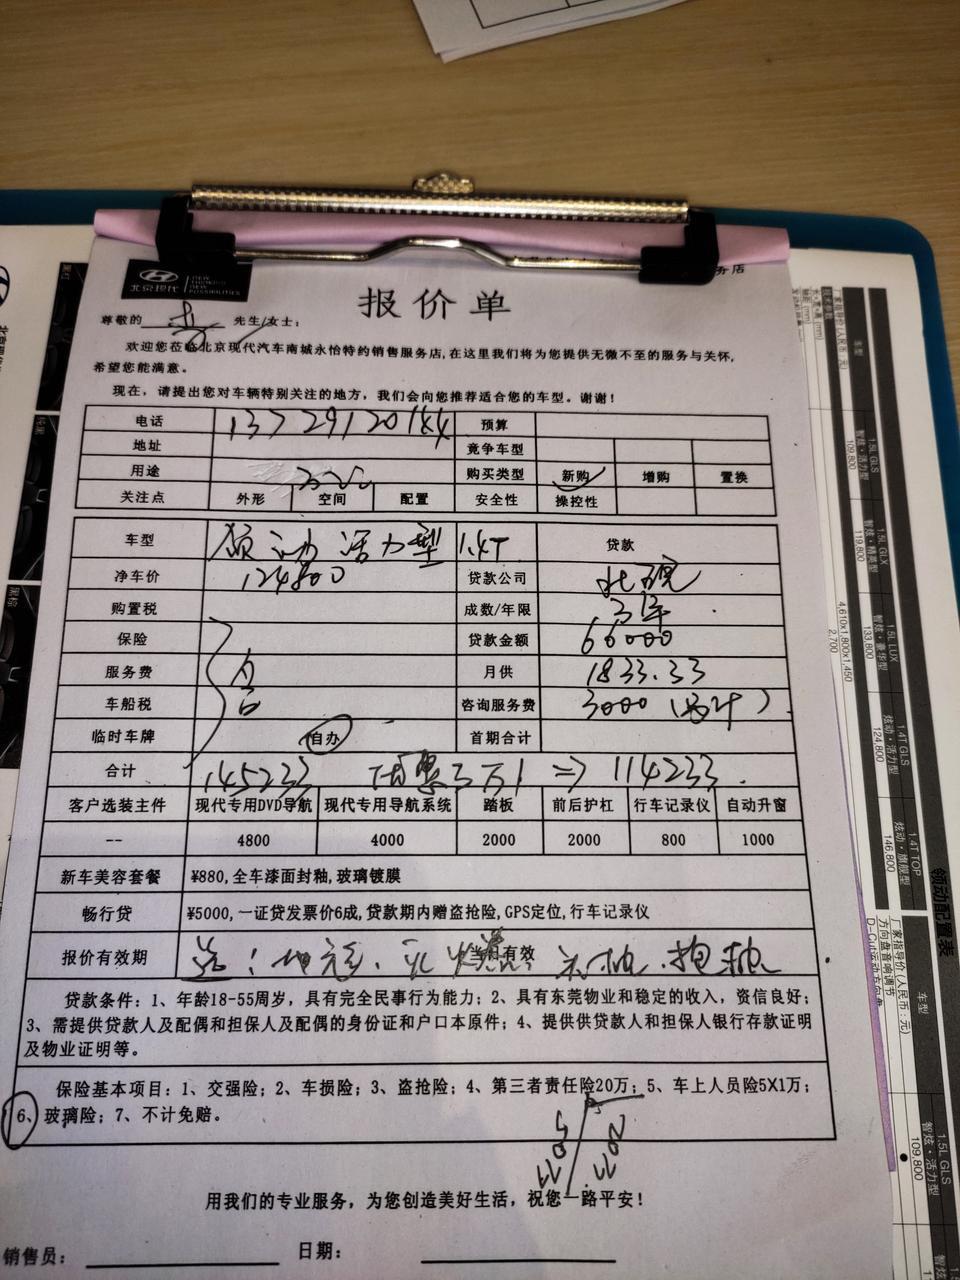 北京现代
NEW THINKING. NEW POSSIBILITIES.
务店
报价单
尊敬的 先生/女士：
欢迎您莅临北京现代汽车南城永怡特约销售服务店,在这里我们将为您提供无微不至的服务与关怀,
希望您能满意。
现在，请提出您对车辆特别关注的地方，我们会向您推荐适合您的车型。谢谢！
电话 预算
地址 竞争车型
用途 购买类型 新购 增购 置换
关注点 外形 空间 配置 安全性 操控性
车型 领动 活力型 1.4T 贷款
净车价 124800 贷款公司 北现
购置税 成数/年限 3年
保险 贷款金额 66000
服务费 月供 1833.33
车船税 咨询服务费 3000
临时车牌 自办 首期合计
合计 145233 优惠3万1 => 114233
客户选装主件 现代专用DVD导航 现代专用导航系统 踏板 前后护杠 行车记录仪 自动升窗
-- 4800 4000 2000 2000 800 1000
新车美容套餐 ¥880,全车漆面封釉,玻璃镀膜
畅行贷 ¥5000,一证贷发票价6成,贷款期内赠盗抢险,GPS定位,行车记录仪
报价有效期 当日有效
贷款条件：1、年龄18-55周岁，具有完全民事行为能力；2、具有东莞物业和稳定的收入，资信良好；
3、需提供贷款人及配偶和担保人及配偶的身份证和户口本原件；4、提供供贷款人和担保人银行存款证明
及物业证明等。
保险基本项目：1、交强险；2、车损险；3、盗抢险；4、第三者责任险20万；5、车上人员险5X1万；
6、玻璃险；7、不计免赔。
用我们的专业服务，为您创造美好生活，祝您一路平安！
销售员： 日期：
领动配置表
车型
厂家指导价(人民币：元)
1.5L GLS
智炫·活力型
109,800
1.5L GLX
智炫·精英型
119,800
1.5L LUX
智炫·豪华型
133,800
1.4T GLS
炫动·活力型
124,800
1.4T TOP
炫动·旗舰型
146,800
4,610x1,800x1,450
2,700
车型
厂家指导价(人民币：元)
方向盘音响调节
1.5L GLS
智炫·活力型
109,800